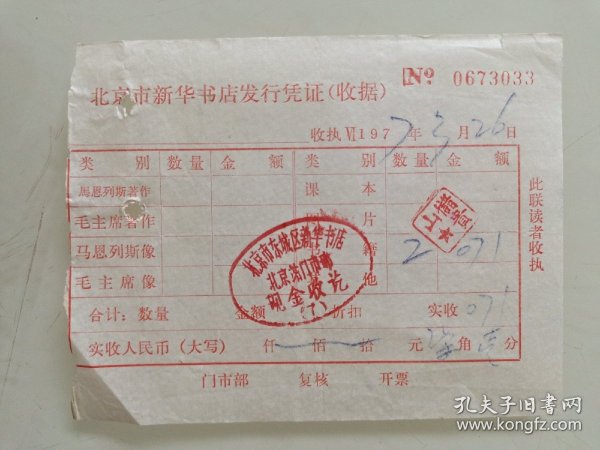 北京市新华书店发行凭证(收据)
№ 0673033
收执 Ⅵ 1977年3月26日
类别 数量 金额 类别 数量 金额
馬恩列斯著作 课本
毛主席著作 片
马恩列斯像 籍 2 071
毛主席像 他
合计：数量 金额 折扣 实收 071
实收人民币（大写） 仟 佰 拾 元 柒角 壱分
门市部 复核 开票
此联读者收执
北京市东城区新华书店
门市部
现金收讫
(7)
孔夫子旧书网
www.kongfz.com